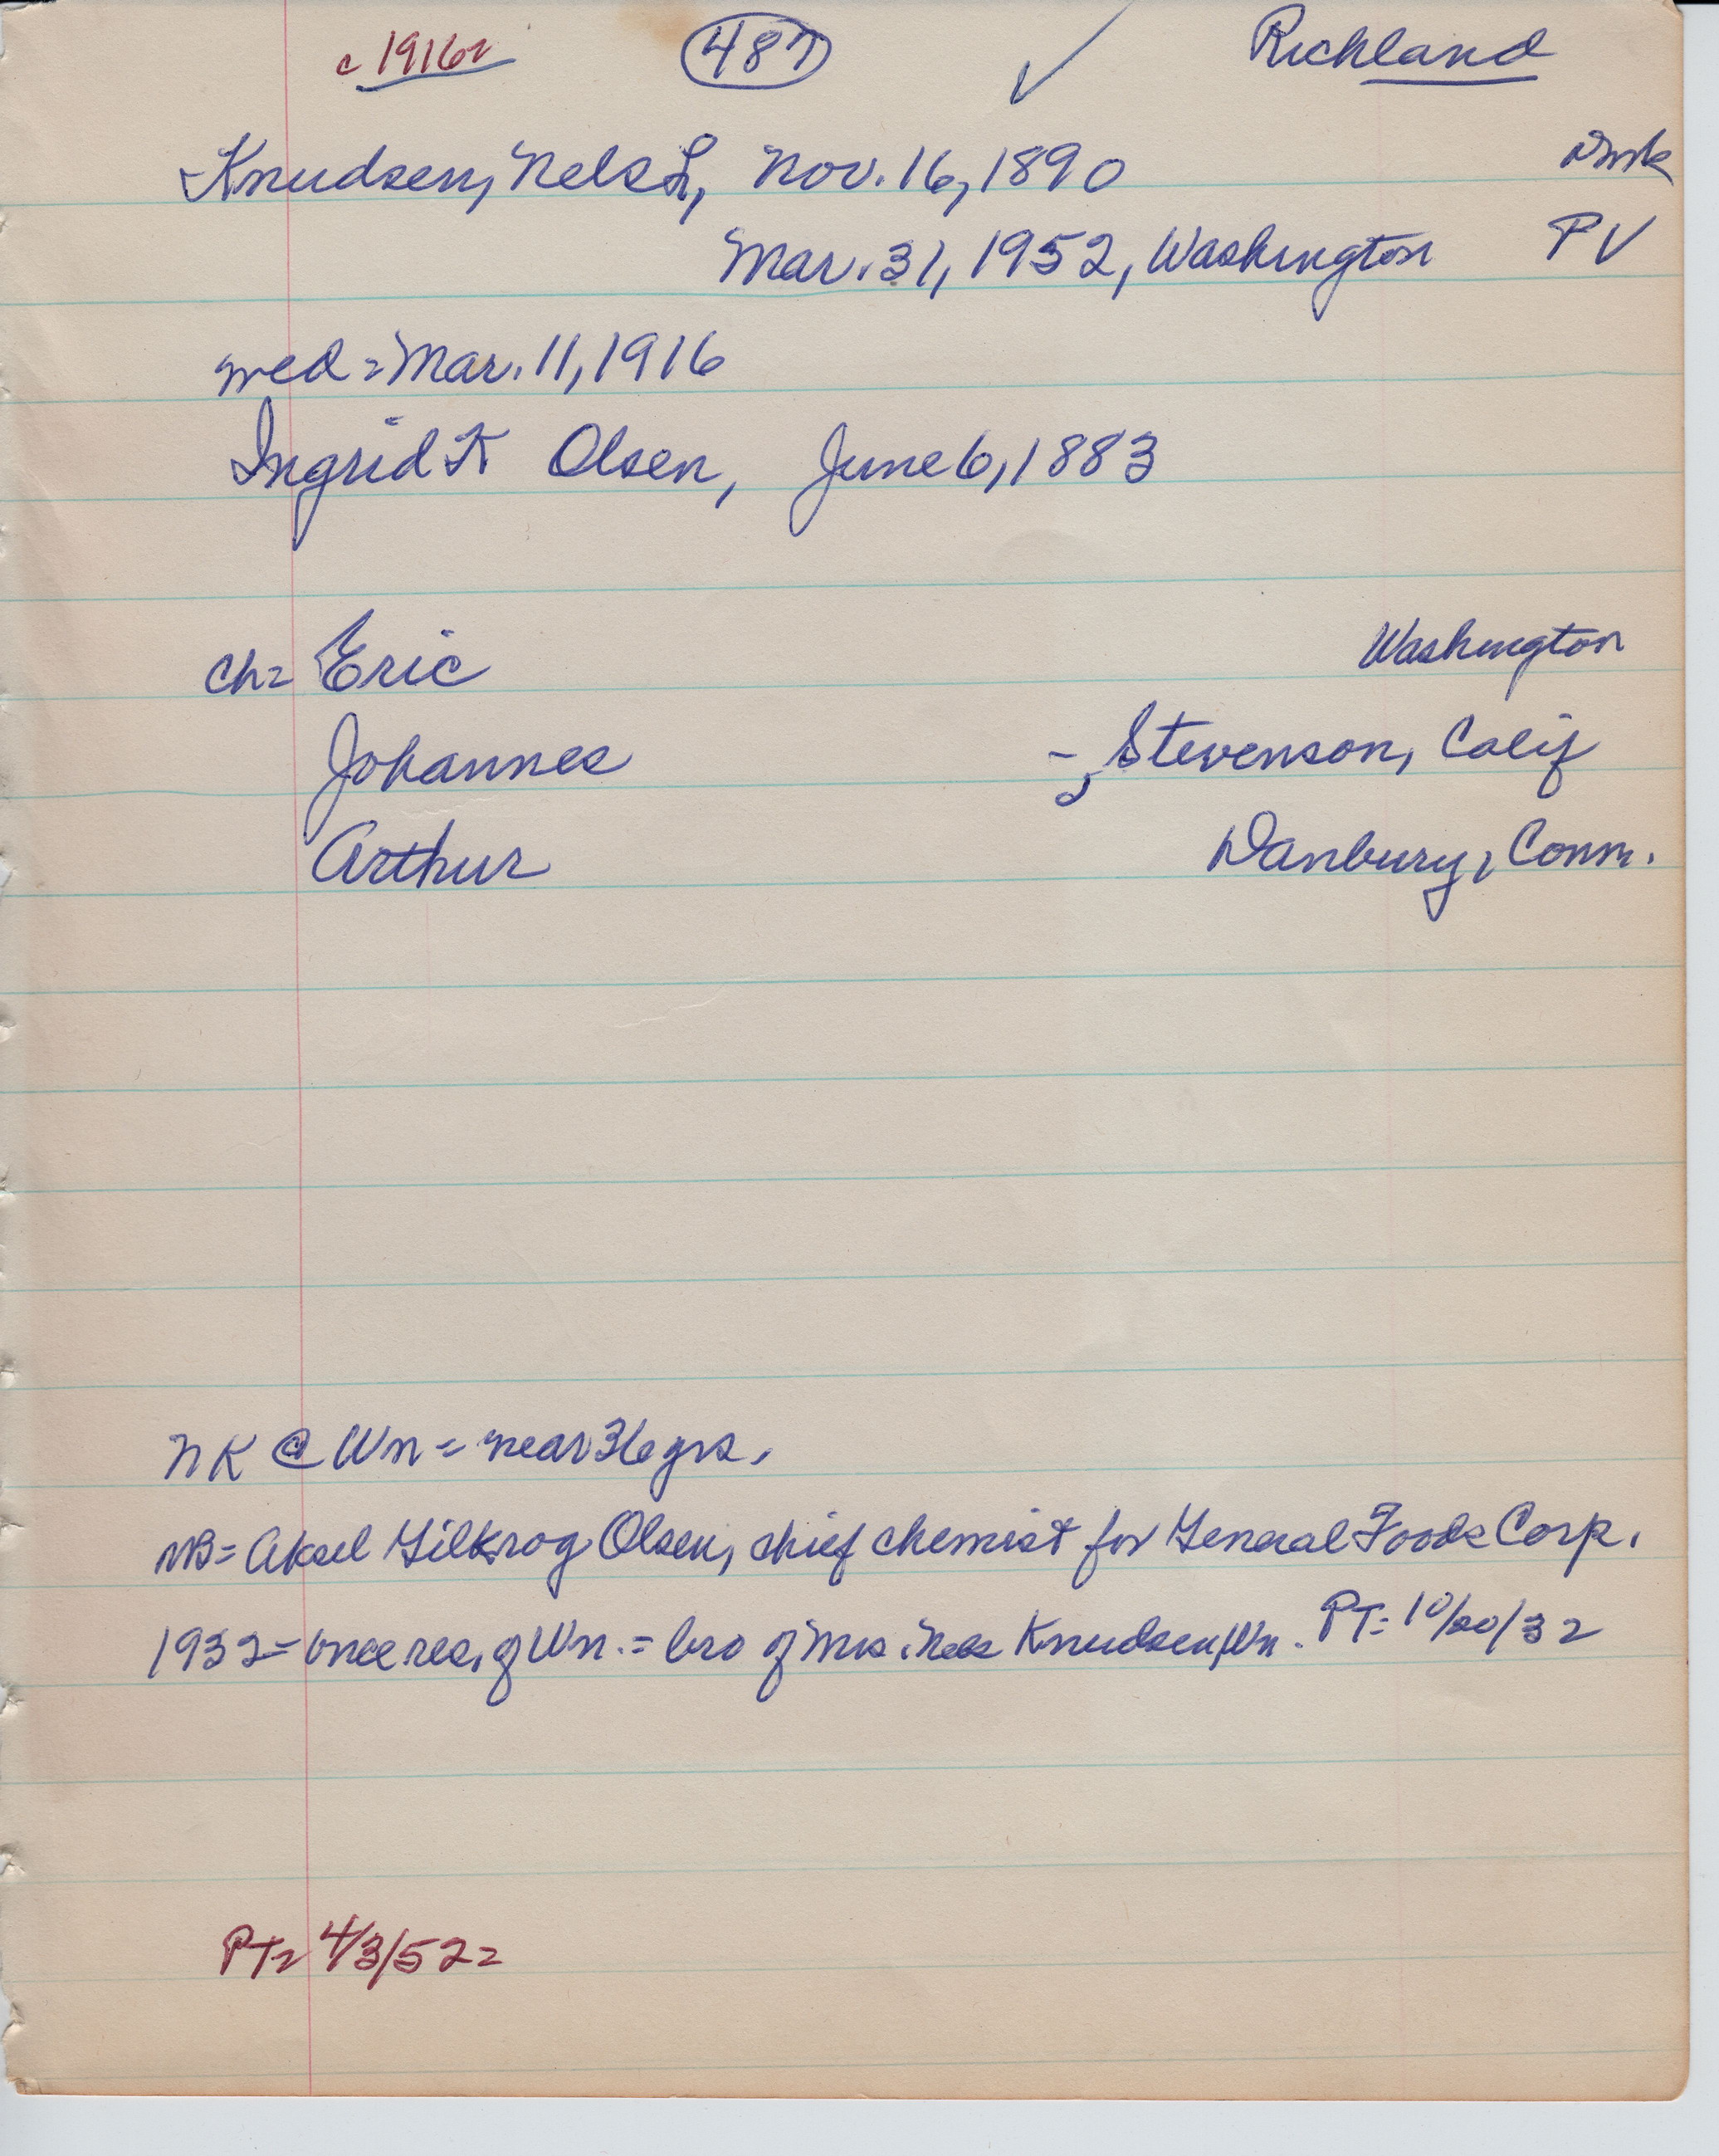 c 1916= 487 ✓ Richland
Knudsen, Nels L, Nov. 16, 1890 Dmk
Mar. 31, 1952, Washington PV
wed = Mar. 11, 1916
Ingrid K Olsen, June 6, 1883
ch= Eric Washington
Johannes -, Stevenson, Calif
Arthur Danbury, Conn.
NK @ Wn = near 36 yrs.
NB = Aksel Gilkrog Olsen, chief chemist for General Foods Corp.
1932 = once res. of Wn. = bro of Mrs. Nels Knudsen, Wn. PT= 10/20/32
PT= 4/3/52=